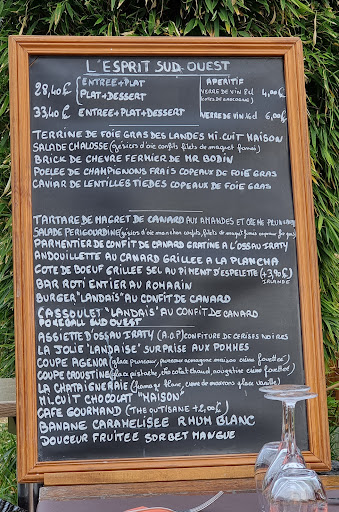 L'ESPRIT SUD OUEST
28,40€ ENTREE+PLAT
PLAT+DESSERT
33,40€ ENTREE+PLAT+DESSERT
APERITIF
VERRE DE VIN 8cl 4,00€
VERRE DE VIN 16cl 6,00€
TERRINE DE FOIE GRAS DES LANDES MI.CUIT MAISON
SALADE CHALOSSE (gésiers d'oie confits filets de magret fumé)
BRICK DE CHEVRE FERMIER DE MR BODIN
POELEE DE CHAMPIGNONS FRAIS COPEAUX DE FOIE GRAS
CAVIAR DE LENTILLES TIEDES COPEAUX DE FOIE GRAS
TARTARE DE MAGRET DE CANARD AUX AMANDES ET
SALADE PERIGOURDINE (gésiers d'oie manchon confits, filets de magret fumé
PARMENTIER DE CONFIT DE CANARD GRATINE A L'OSSAU IRATY
ANDOUILLETTE AU CANARD GRILLEE A LA PLANCHA
COTE DE BOEUF GRILLEE SEL AU PIMENT D'ESPELETTE (+3,90€)
IRLANDE
BAR ROTI ENTIER AU ROMARIN
BURGER "LANDAIS" AU CONFIT DE CANARD
CASSOULET "LANDAIS" AU CONFIT DE CANARD
POKEBALL SUD OUEST
ASSIETTE D'OSSAU IRATY (A.O.P) CONFITURE DE CERISES NOIRES
LA JOLIE "LANDAISE" SURPRISE AUX POMMES
COUPE AGENOR (glace pruneaux, pruneaux armagnac maison crème fouettée)
COUPE CROUSTINE (glace pistache, chocolat chaud, nougatine crème fouettée)
LA CHATAIGNERAIE (fromage blanc, crème de marrons glace vanille)
MI.CUIT CHOCOLAT "MAISON"
CAFE GOURMAND (THE OU TISANE +2,00€)
BANANE CARAMELISEE RHUM BLANC
DOUCEUR FRUITEE SORBET MANGUE